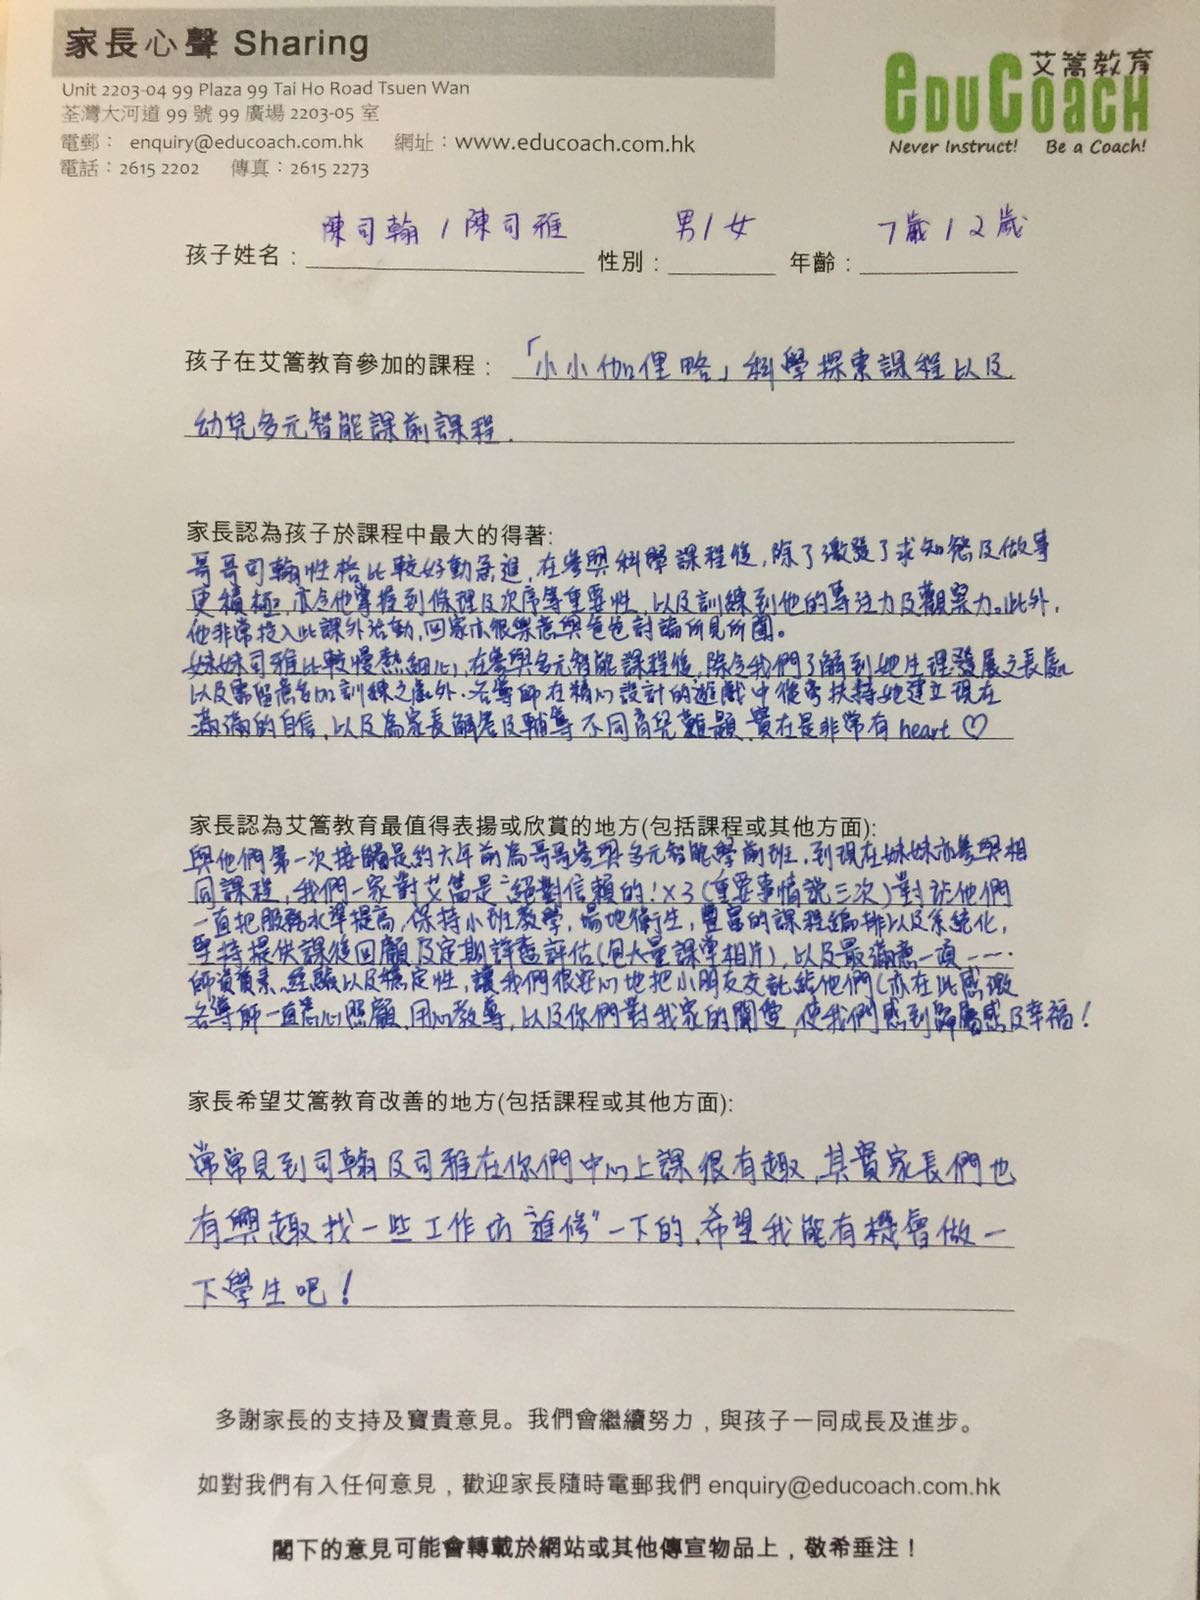 家長心聲 Sharing
Unit 2203-04 99 Plaza 99 Tai Ho Road Tsuen Wan
荃灣大河道 99 號 99 廣場 2203-05 室
電郵： enquiry@educoach.com.hk 網址：www.educoach.com.hk
電話：2615 2202 傳真：2615 2273
艾篙教育
eDUCoacH
Never Instruct! Be a Coach!
孩子姓名：陳司翰/陳司雅 性別：男/女 年齡：7歲/2歲
孩子在艾篙教育參加的課程：「小小伽俚略」科學探索課程以及
幼兒多元智能課前課程.
家長認為孩子於課程中最大的得著:
哥哥司翰性格比較好動急進,在參與科學課程後,除了激發了求知慾及做事
更積極,亦令他掌握到條理及次序等重要性,以及訓練到他的專注力及觀察力。此外,
他非常投入此課外活動,回家亦很樂意與爸爸討論所見所聞。
妹妹司雅比較慢熱細心,在參與多元智能課程後,除令我們了解到她生理發展之長處
以及需留意多加訓練之處外,各導師在精心設計的遊戲中從旁扶持她建立現在
滿滿的自信,以及為家長解答及輔導不同育兒難題,實在是非常有heart♡
家長認為艾篙教育最值得表揚或欣賞的地方(包括課程或其他方面):
與他們第一次接觸是約六年前為哥哥參與多元智能學前班,到現在妹妹亦參與相
同課程,我們一家對艾篙是"絕對信賴的!x3(重要事情說三次)對於他們
一直把服務水準提高,保持小班教學,場地衛生,豐富的課程編排以及系統化,
堅持提供課後回顧及定期評估(包大量課堂相片),以及最滿意一項-----
師資質素、經驗以及穩定性,讓我們很安心地把小朋友交託給他們(亦在此感激
各導師一直悉心照顧,用心教導,以及你們對我家的關愛,使我們感到歸屬感及幸福!
家長希望艾篙教育改善的地方(包括課程或其他方面):
常常見到司翰及司雅在你們中心上課很有趣,其實家長們也
有興趣找一些工作坊"進修"一下的,希望我能有機會做一
下學生吧!
多謝家長的支持及寶貴意見。我們會繼續努力，與孩子一同成長及進步。
如對我們有入任何意見，歡迎家長隨時電郵我們 enquiry@educoach.com.hk
閣下的意見可能會轉載於網站或其他傳宣物品上，敬希垂注！